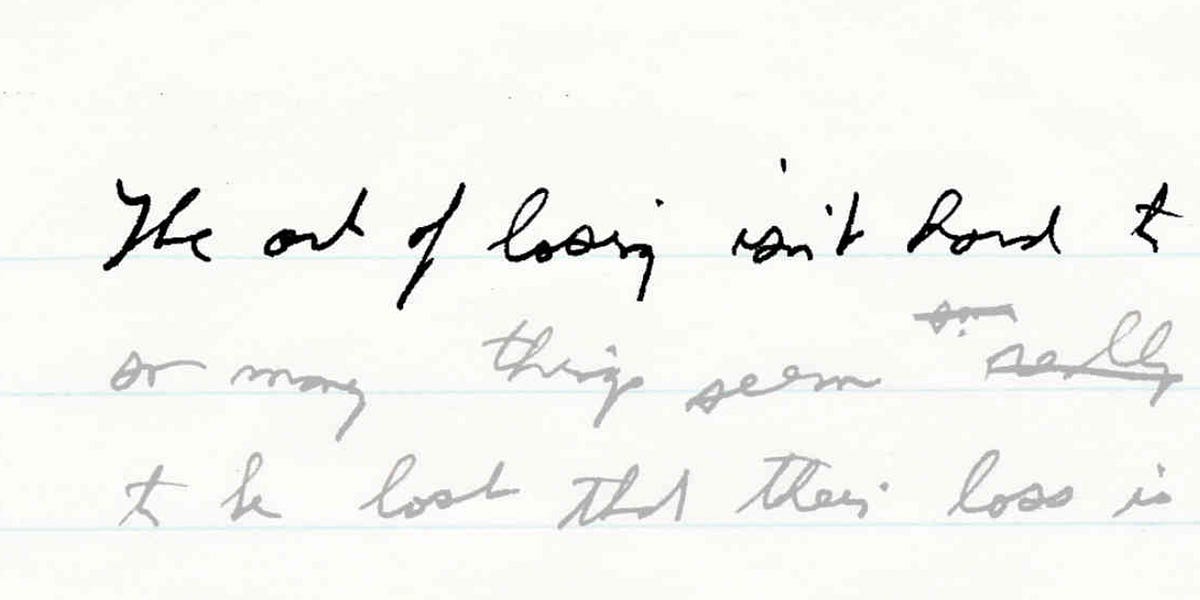 The art of losing isn't hard to
so many things seem really
to be lost that their loss is